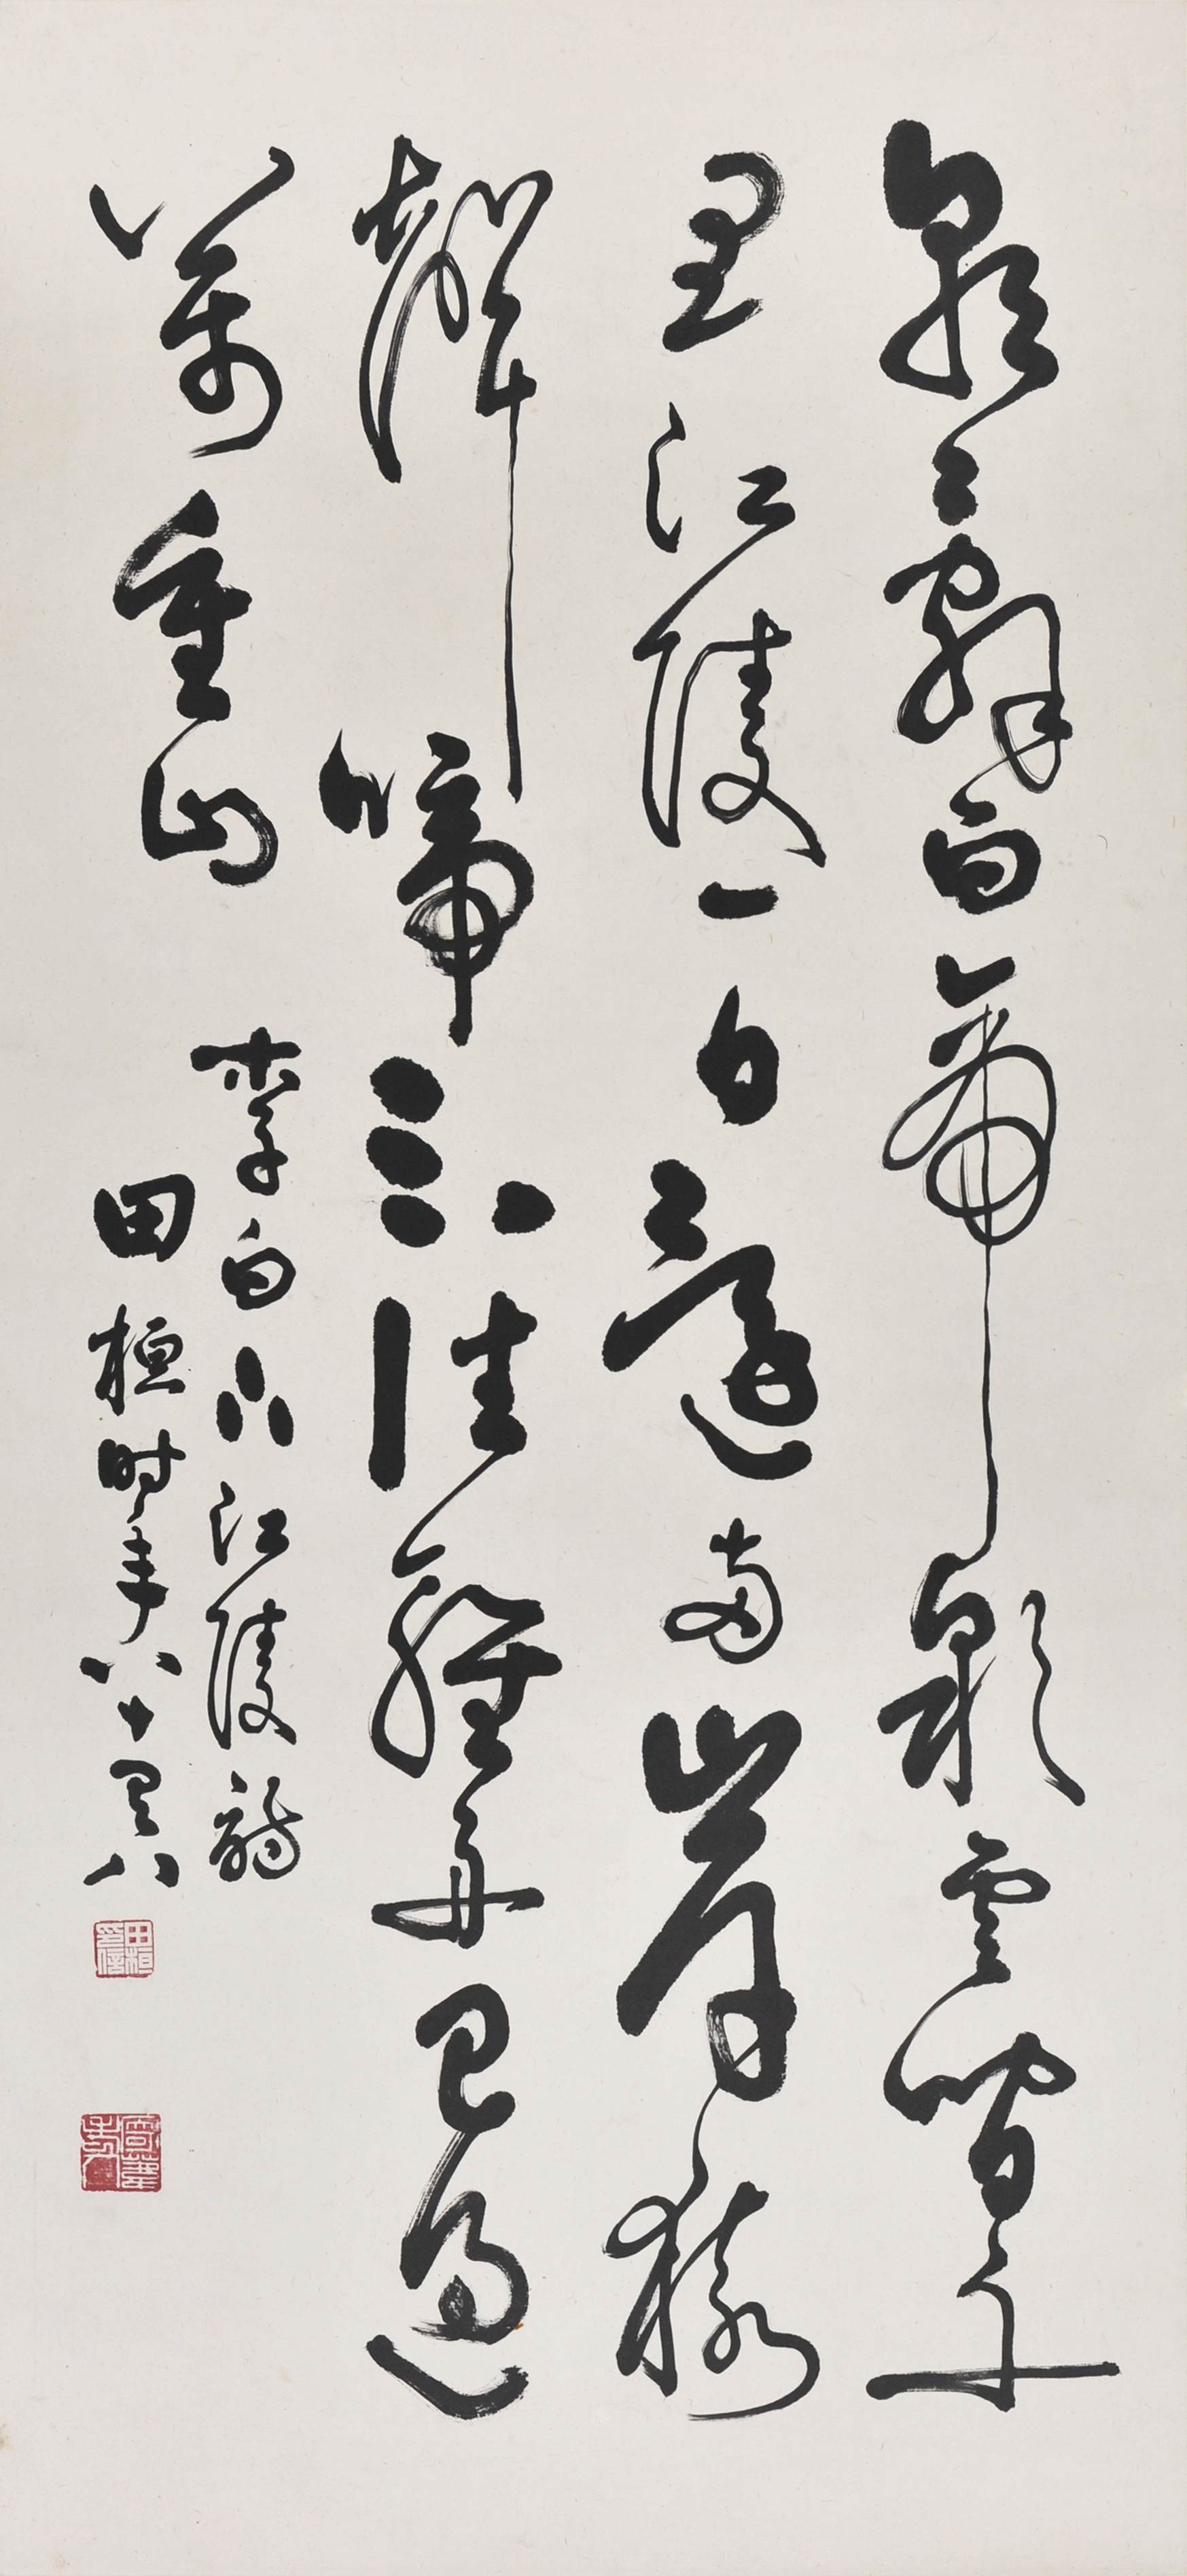 朝辭白帝彩雲間千
里江陵一日還兩岸猿
聲啼不住輕舟已過
萬重山
李白下江陵詩
田桓时年八十八
田桓印信